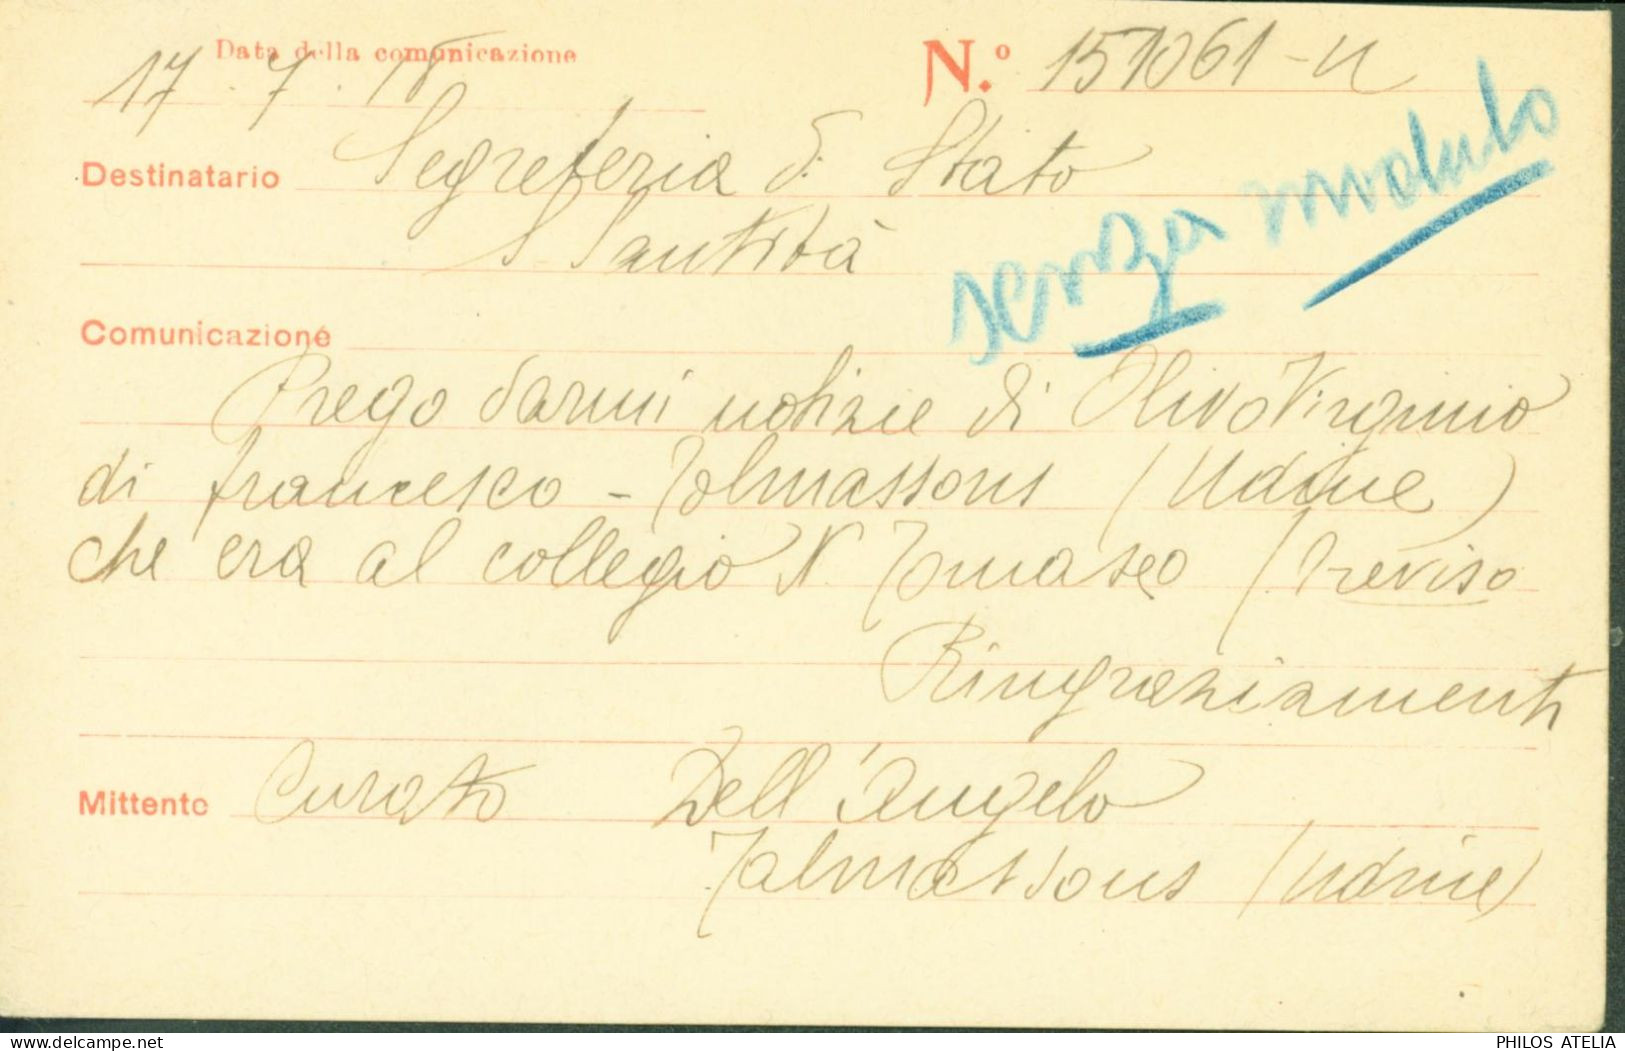 Data della comunicazione N.º 151061-N
17.7.18
senza modulo
Destinatario Segreteria di Stato
S. Santità
Comunicazione
Prego darmi notizie di Olivo Virginio
di Francesco - Talmassons (Udine)
che era al collegio N. Tomaseo (Treviso
Ringraziamenti
Mittente Curato Dell'Angelo
Talmassons (Udine)
PHILOS ATELIA
delcampe.net